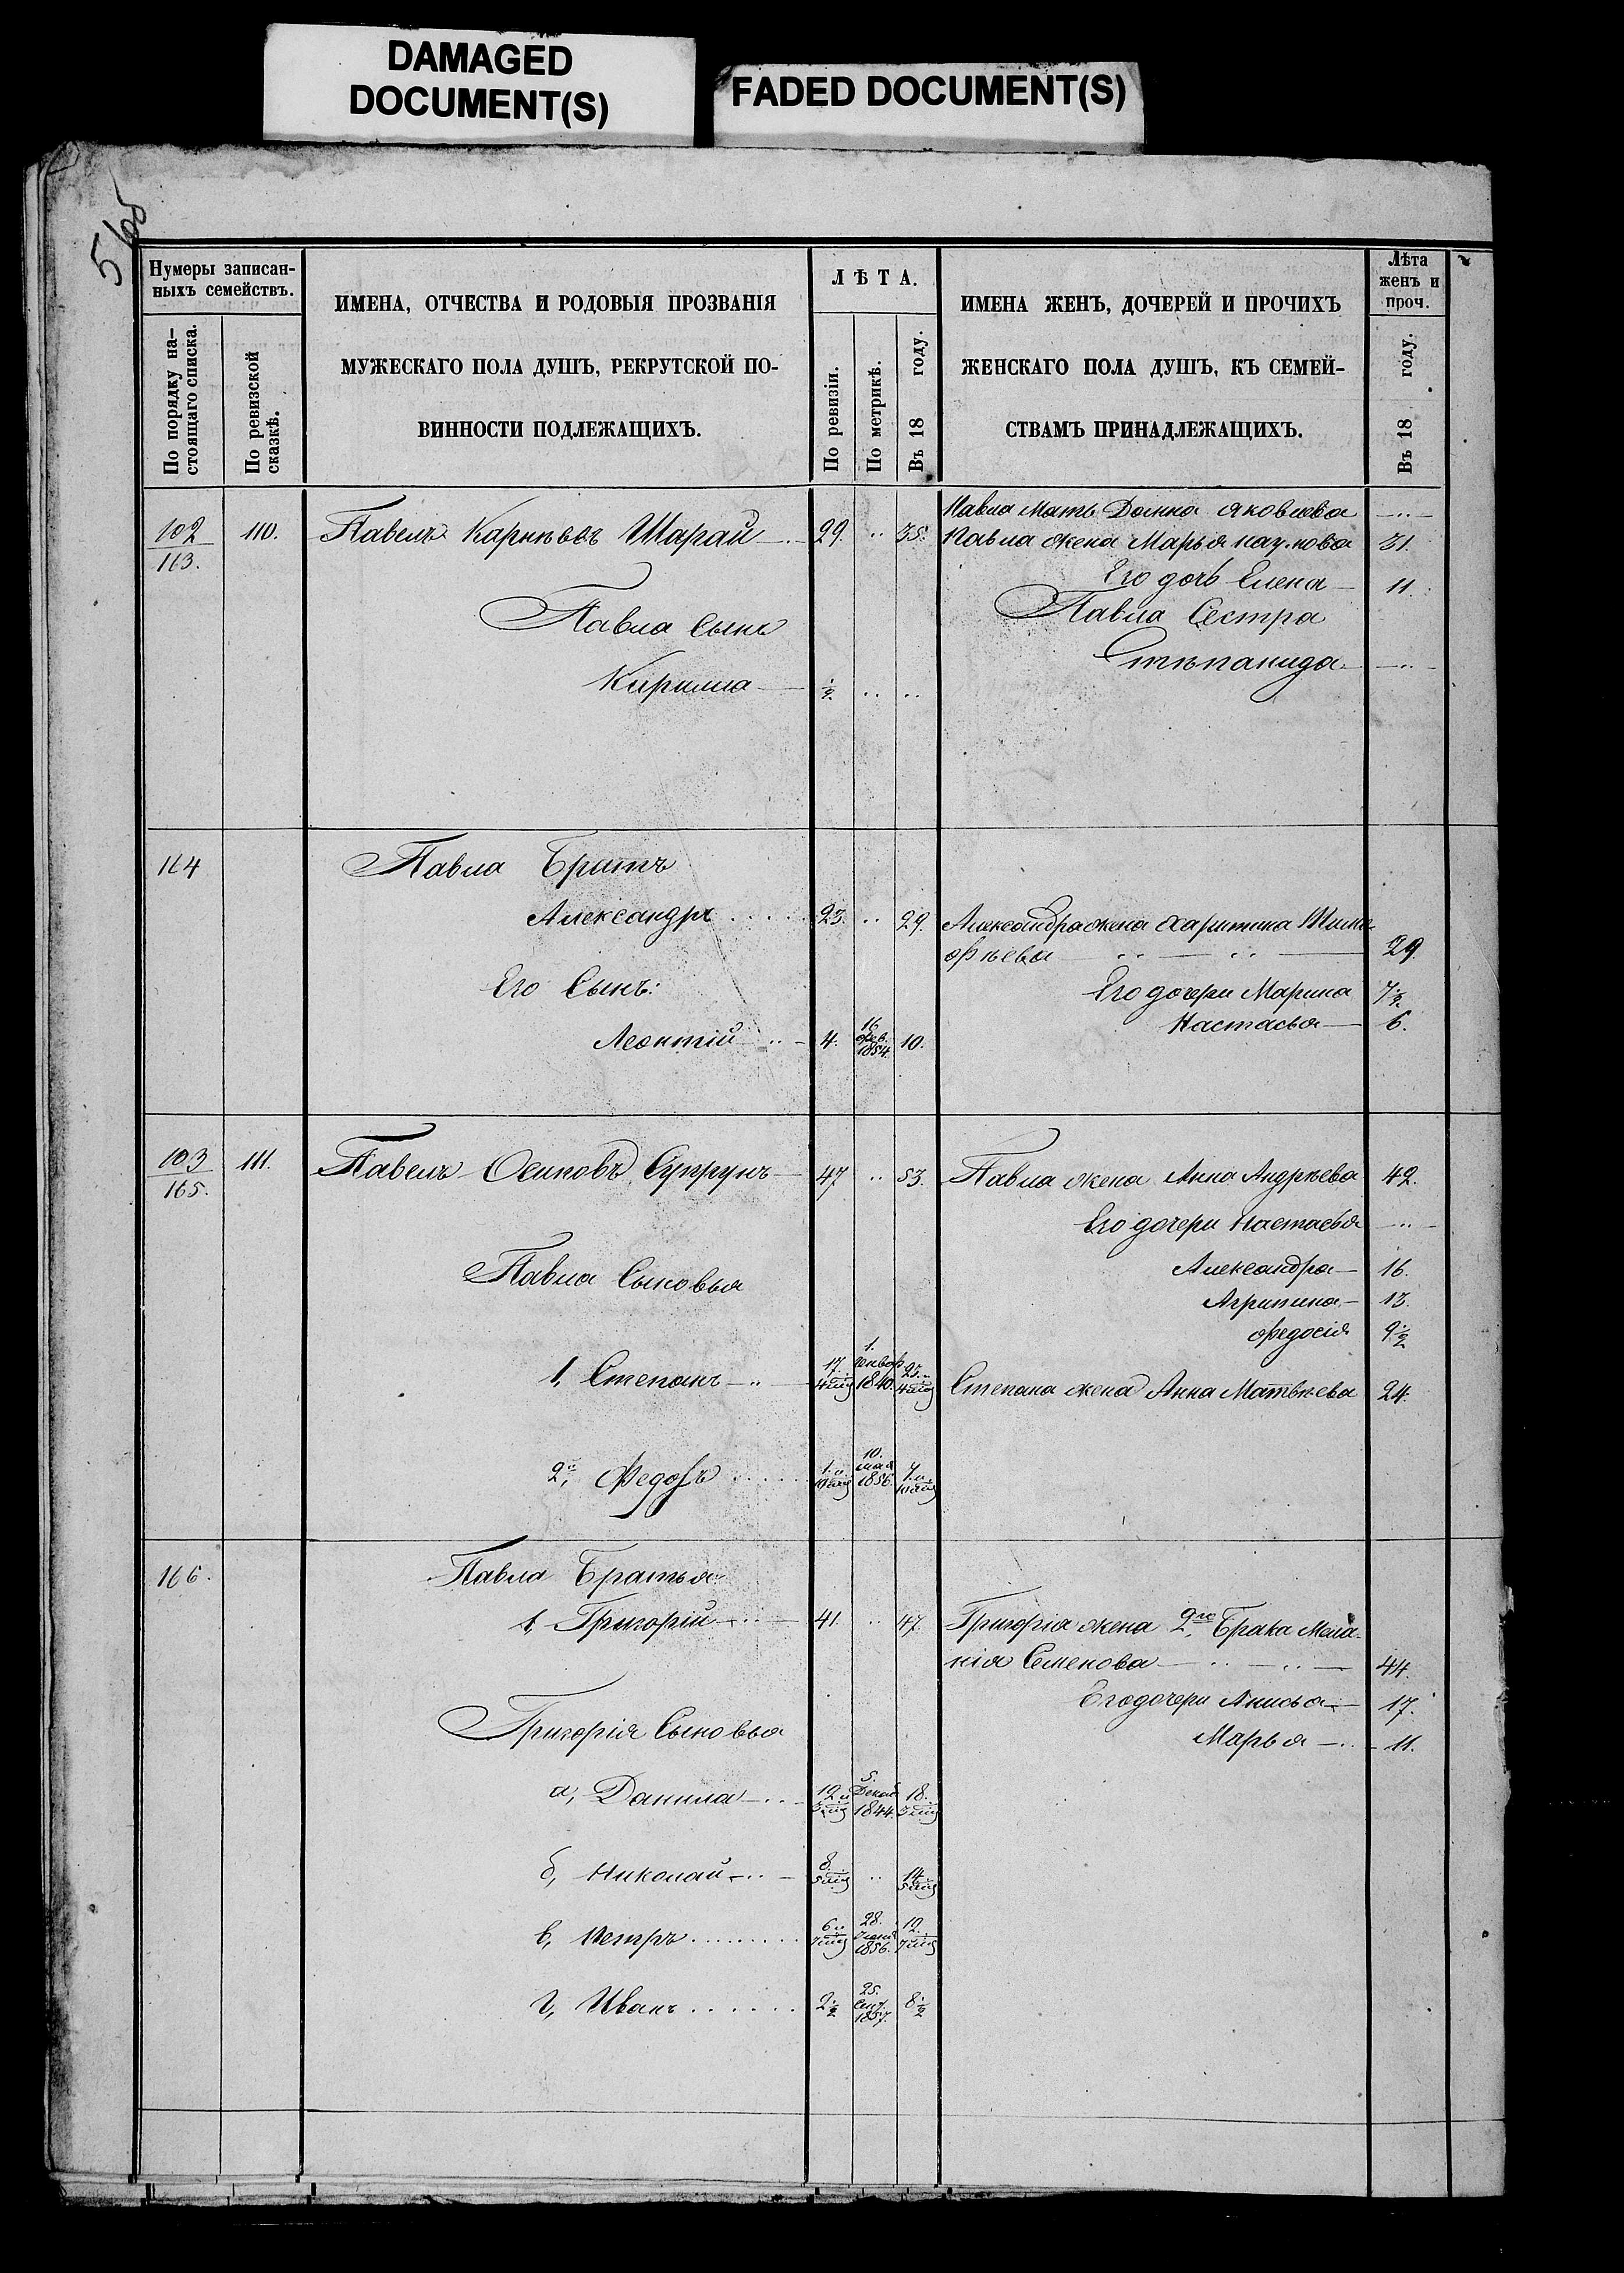 DAMAGED
DOCUMENT(S)
FADED DOCUMENT(S)
Нумеры записан-
ныхъ семействъ.
По порядку на-
стоящаго списка.
По ревизской
сказкѣ.
ИМЕНА, ОТЧЕСТВА И РОДОВЫЯ ПРОЗВАНІЯ
МУЖЕСКАГО ПОЛА ДУШЪ, РЕКРУТСКОЙ ПО-
ВИННОСТИ ПОДЛЕЖАЩИХЪ.
ЛѢТА.
По ревизіи.
По метрикѣ.
Въ 18 году.
ИМЕНА ЖЕНЪ, ДОЧЕРЕЙ И ПРОЧИХЪ
ЖЕНСКАГО ПОЛА ДУШЪ, КЪ СЕМЕЙ-
СТВАМЪ ПРИНАДЛЕЖАЩИХЪ.
Лѣта
женъ и
проч.
Въ 18 году.
Павла мать Домна Яковлева —..—
102
163. 110. Павелъ Карнѣевъ Шарай 29. .. 35. Павла жена Марья Наумова 31.
Его дочь Елена — 11.
Павла Сынъ Павла Сестра
Стѣпанида —..—
Кирилла — ½ .. ..
164 Павла Братъ
Александръ . . . . 23. .. 29. Александра жена Харитина Тимо-
фѣева — .. — .. — 29.
Его Сынъ: Его дочери Марина 7½.
Настасья — 6.
Леонтій .. — 4. 16 Фев. 1854. 10.
103
165. 111. Павелъ Осиповъ Супрунъ — 47 .. 53. Павла жена Анна Андрѣева 42.
Его дочери Настасья —..—
Павла Сыновья Александра — 16.
Агрипина — 13.
Федосія 9½
1, Степанъ — .. — 17. 1. Январ 1840. Степана жена Анна Матвѣева 24.
2, Федоръ . . . . . 10. мая 1856.
166. Павла Братья
1, Григорій — .. — 41. .. 47. Григорія жена 2го Брака Мела-
нія Семенова — .. — .. — 44.
Его дочери Анисья — 17.
Григорія Сыновья Марья — .. — 11.
а, Данила — .. 12 5. Декаб 1844. 18.
б, Николай — .. — 8. .. 14.
в, Петръ . . . . . . . . 6 28. 1856. 12.
г, Иванъ . . . . . . 2½ 25. Сент. 1857. 8½